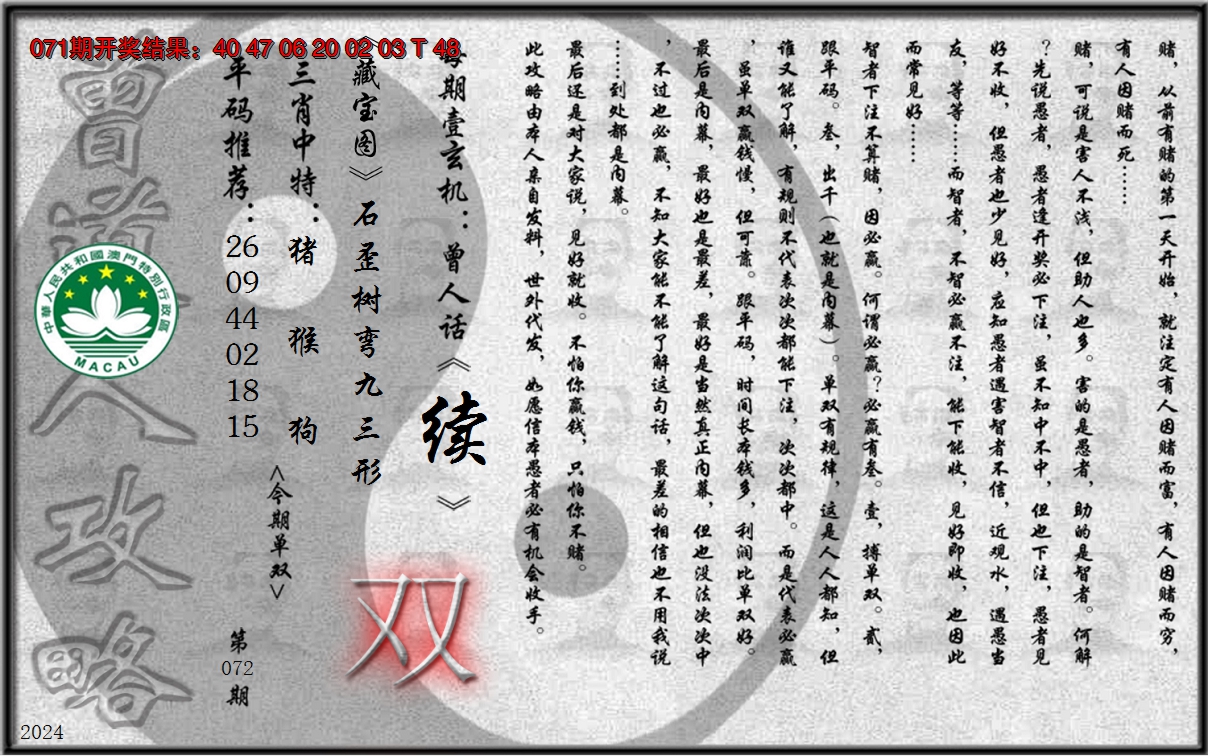 071期开奖结果：40 47 06 20 02 03 T 48
赌，从前有赌的第一天开始，就注定有人因赌而富，有人因赌而穷，
有人因赌而死……
赌，可说是害人不浅，但助人也多。害的是愚者，助的是智者。何解
？先说愚者，愚者逢开奖必下注，虽不知中不中，但也下注，愚者见
好不收，但愚者也少见好，应知愚者遇害智者不信，近观水，遇愚当
友，等等……而智者，不智必赢不注，能下能收，见好即收，也因此
而常见好……
智者下注不算赌，因必赢。何谓必赢？必赢有叁。壹，搏单双。贰，
跟平码。叁，出千（也就是内幕）。单双有规律，这是人人都知，但
谁又能了解，有规则不代表次次都能下注，次次都中。而是代表必赢
，虽单双赢钱慢，但可靠。跟平码，时间长本钱多，利润比单双好。
最后是内幕，最好也是最差，最好是当然真正内幕，但也没法次次中
，不过也必赢，不知大家能不能了解这句话，最差的相信也不用我说
……到处都是内幕。
最后还是对大家说，见好就收。不怕你赢钱，只怕你不赌。
此攻略由本人亲自发料，世外代发，如愿信本愚者必有机会收手。
每期壹玄机：曾人话《续》
双
《藏宝图》石歪树弯九三形
三肖中特：猪 猴 狗
<今期单双>
平码推荐：
26
09
44
02
18
15
第
072
期
曾道人攻略
中華人民共和國澳門特別行政區
MACAU
2024